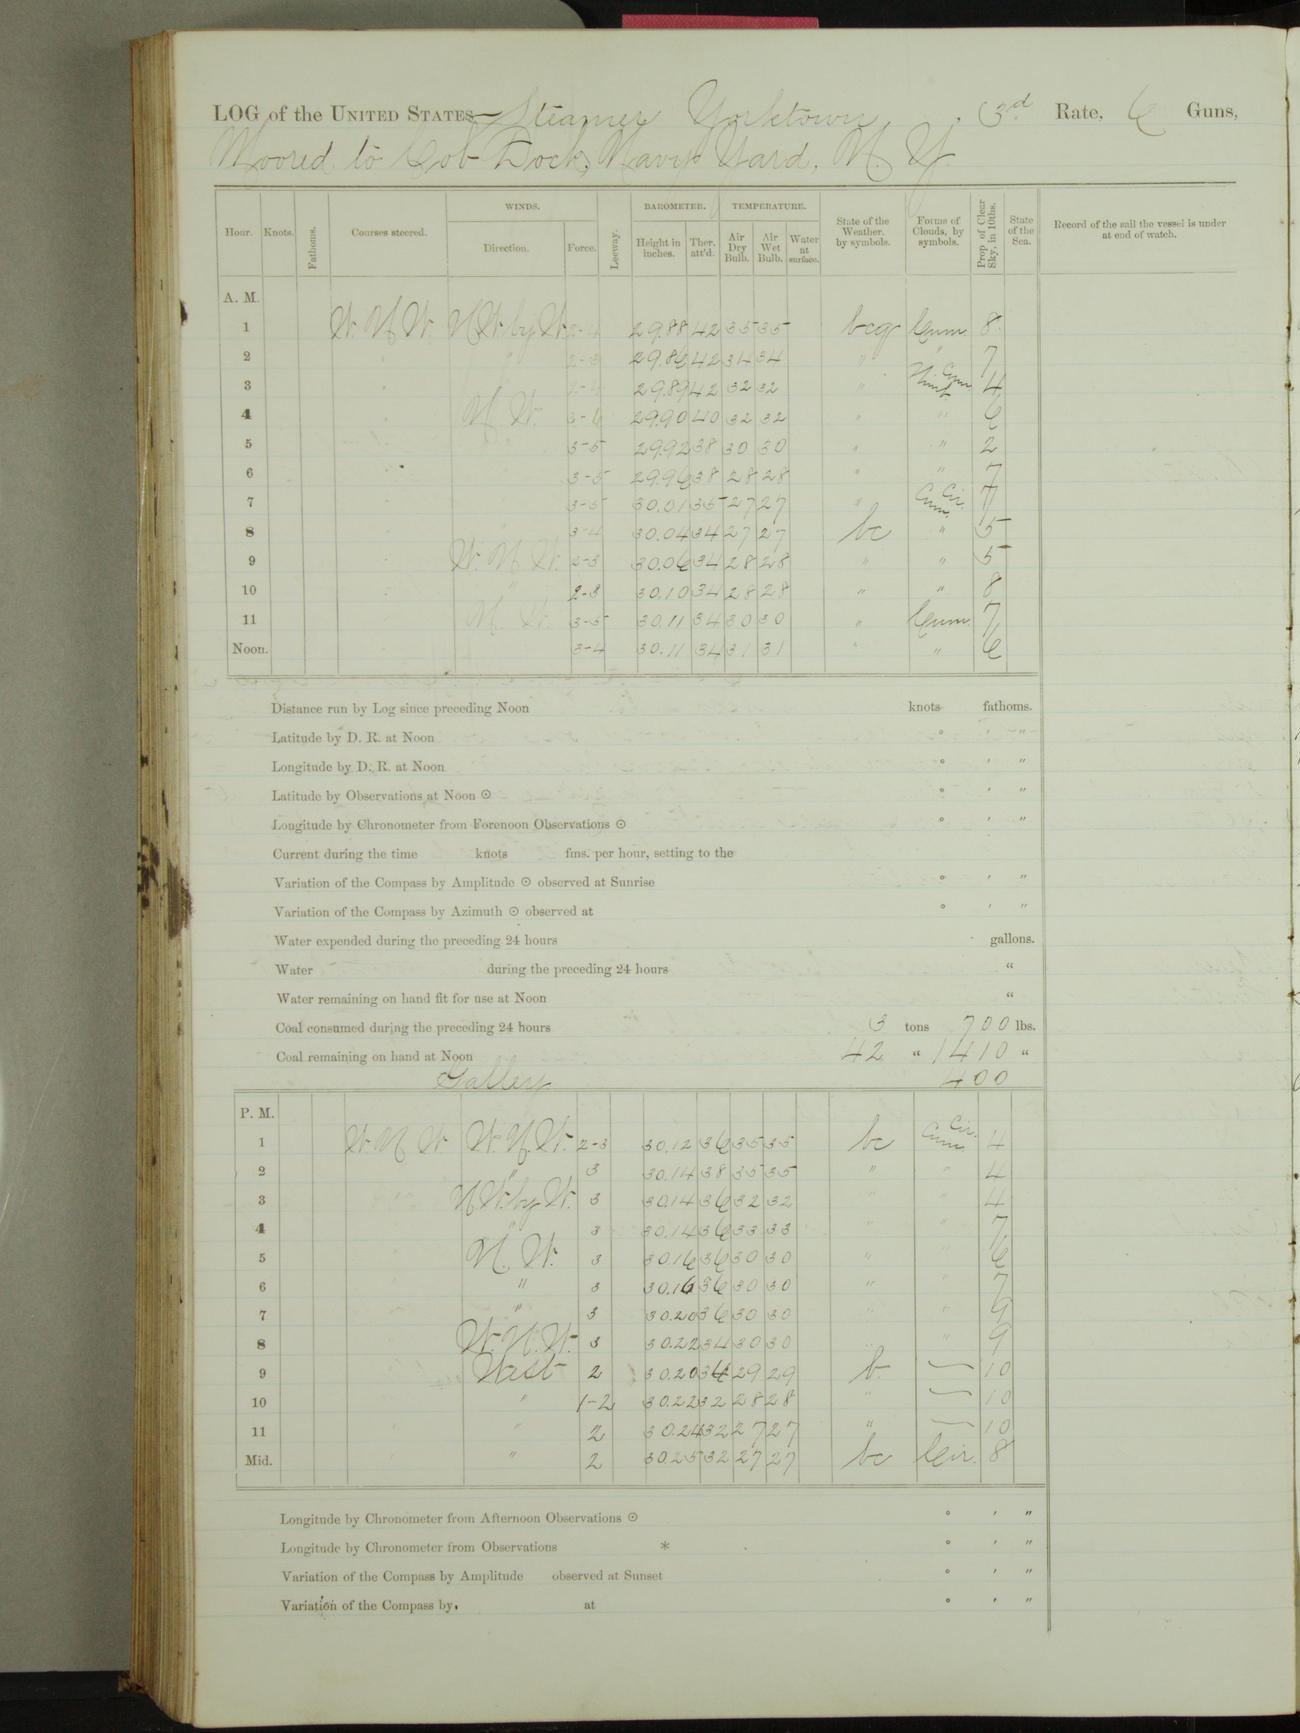 LOG of the UNITED STATES Steamer Yorktown, 3rd Rate, 6 Guns,
Moored to Cob Dock, Navy Yard, N. Y.
Hour. Knots. Fathoms. Courses steered. WINDS. Direction. Force. Leeway. BAROMETER. Height in inches. Ther. att'd. TEMPERATURE. Air Dry Bulb. Air Wet Bulb. Water at surface. State of the Weather, by symbols. Forms of Clouds, by symbols. Prop of Clear Sky, in 10ths. State of the Sea. Record of the sail the vessel is under at end of watch.
A. M.
1 W. N. W. N.W. by W. 2-4 29.88 42 35 35 bcq Cum. 8
2 " 2-3 29.86 42 34 34 " " 7
3 29.89 42 32 32 " Cum. 4
4 N. W. 29.90 40 32 32 " " 6
5 3-5 29.92 38 30 30 " " 2
6 3-5 29.96 38 28 28 " " 7
7 3-5 30.01 35 27 27 " Cir. Cum. 7
8 3-4 30.04 34 27 27 bc " 5
9 W. N. W. 2-3 30.06 34 28 28 " " 5
10 " 2-3 30.10 34 28 28 " " 8
11 N. W. 3-5 30.11 34 30 30 " Cum. 7
Noon. 3-4 30.11 34 31 31 " " 6
Distance run by Log since preceding Noon knots fathoms.
Latitude by D. R. at Noon ° ' "
Longitude by D. R. at Noon ° ' "
Latitude by Observations at Noon ⊙ ° ' "
Longitude by Chronometer from Forenoon Observations ⊙ ° ' "
Current during the time knots fms. per hour, setting to the
Variation of the Compass by Amplitude ⊙ observed at Sunrise ° ' "
Variation of the Compass by Azimuth ⊙ observed at ° ' "
Water expended during the preceding 24 hours gallons.
Water during the preceding 24 hours "
Water remaining on hand fit for use at Noon "
Coal consumed during the preceding 24 hours 3 tons 700 lbs.
Coal remaining on hand at Noon 42 " 1410 "
Galley 400
P. M.
1 W. N. W. W. N. W. 2-3 30.12 36 35 35 bc Cir. Cum. 4
2 " 3 30.14 38 35 35 " " 4
3 N.W. by W. 3 30.14 36 32 32 " " 4
4 " 3 30.14 36 33 33 " " 7
5 N. W. 3 30.16 36 30 30 " " 6
6 " 3 30.16 36 30 30 " " 7
7 " 3 30.20 36 30 30 " " 9
8 W. N. W. 3 30.22 34 30 30 " 9
9 West 2 30.20 34 29 29 b — 10
10 " 1-2 30.22 32 28 28 " — 10
11 " 2 30.24 32 27 27 " — 10
Mid. " 2 30.25 32 27 27 bc Cir. 8
Longitude by Chronometer from Afternoon Observations ⊙ ° ' "
Longitude by Chronometer from Observations * ° ' "
Variation of the Compass by Amplitude observed at Sunset ° ' "
Variation of the Compass by at ° ' "